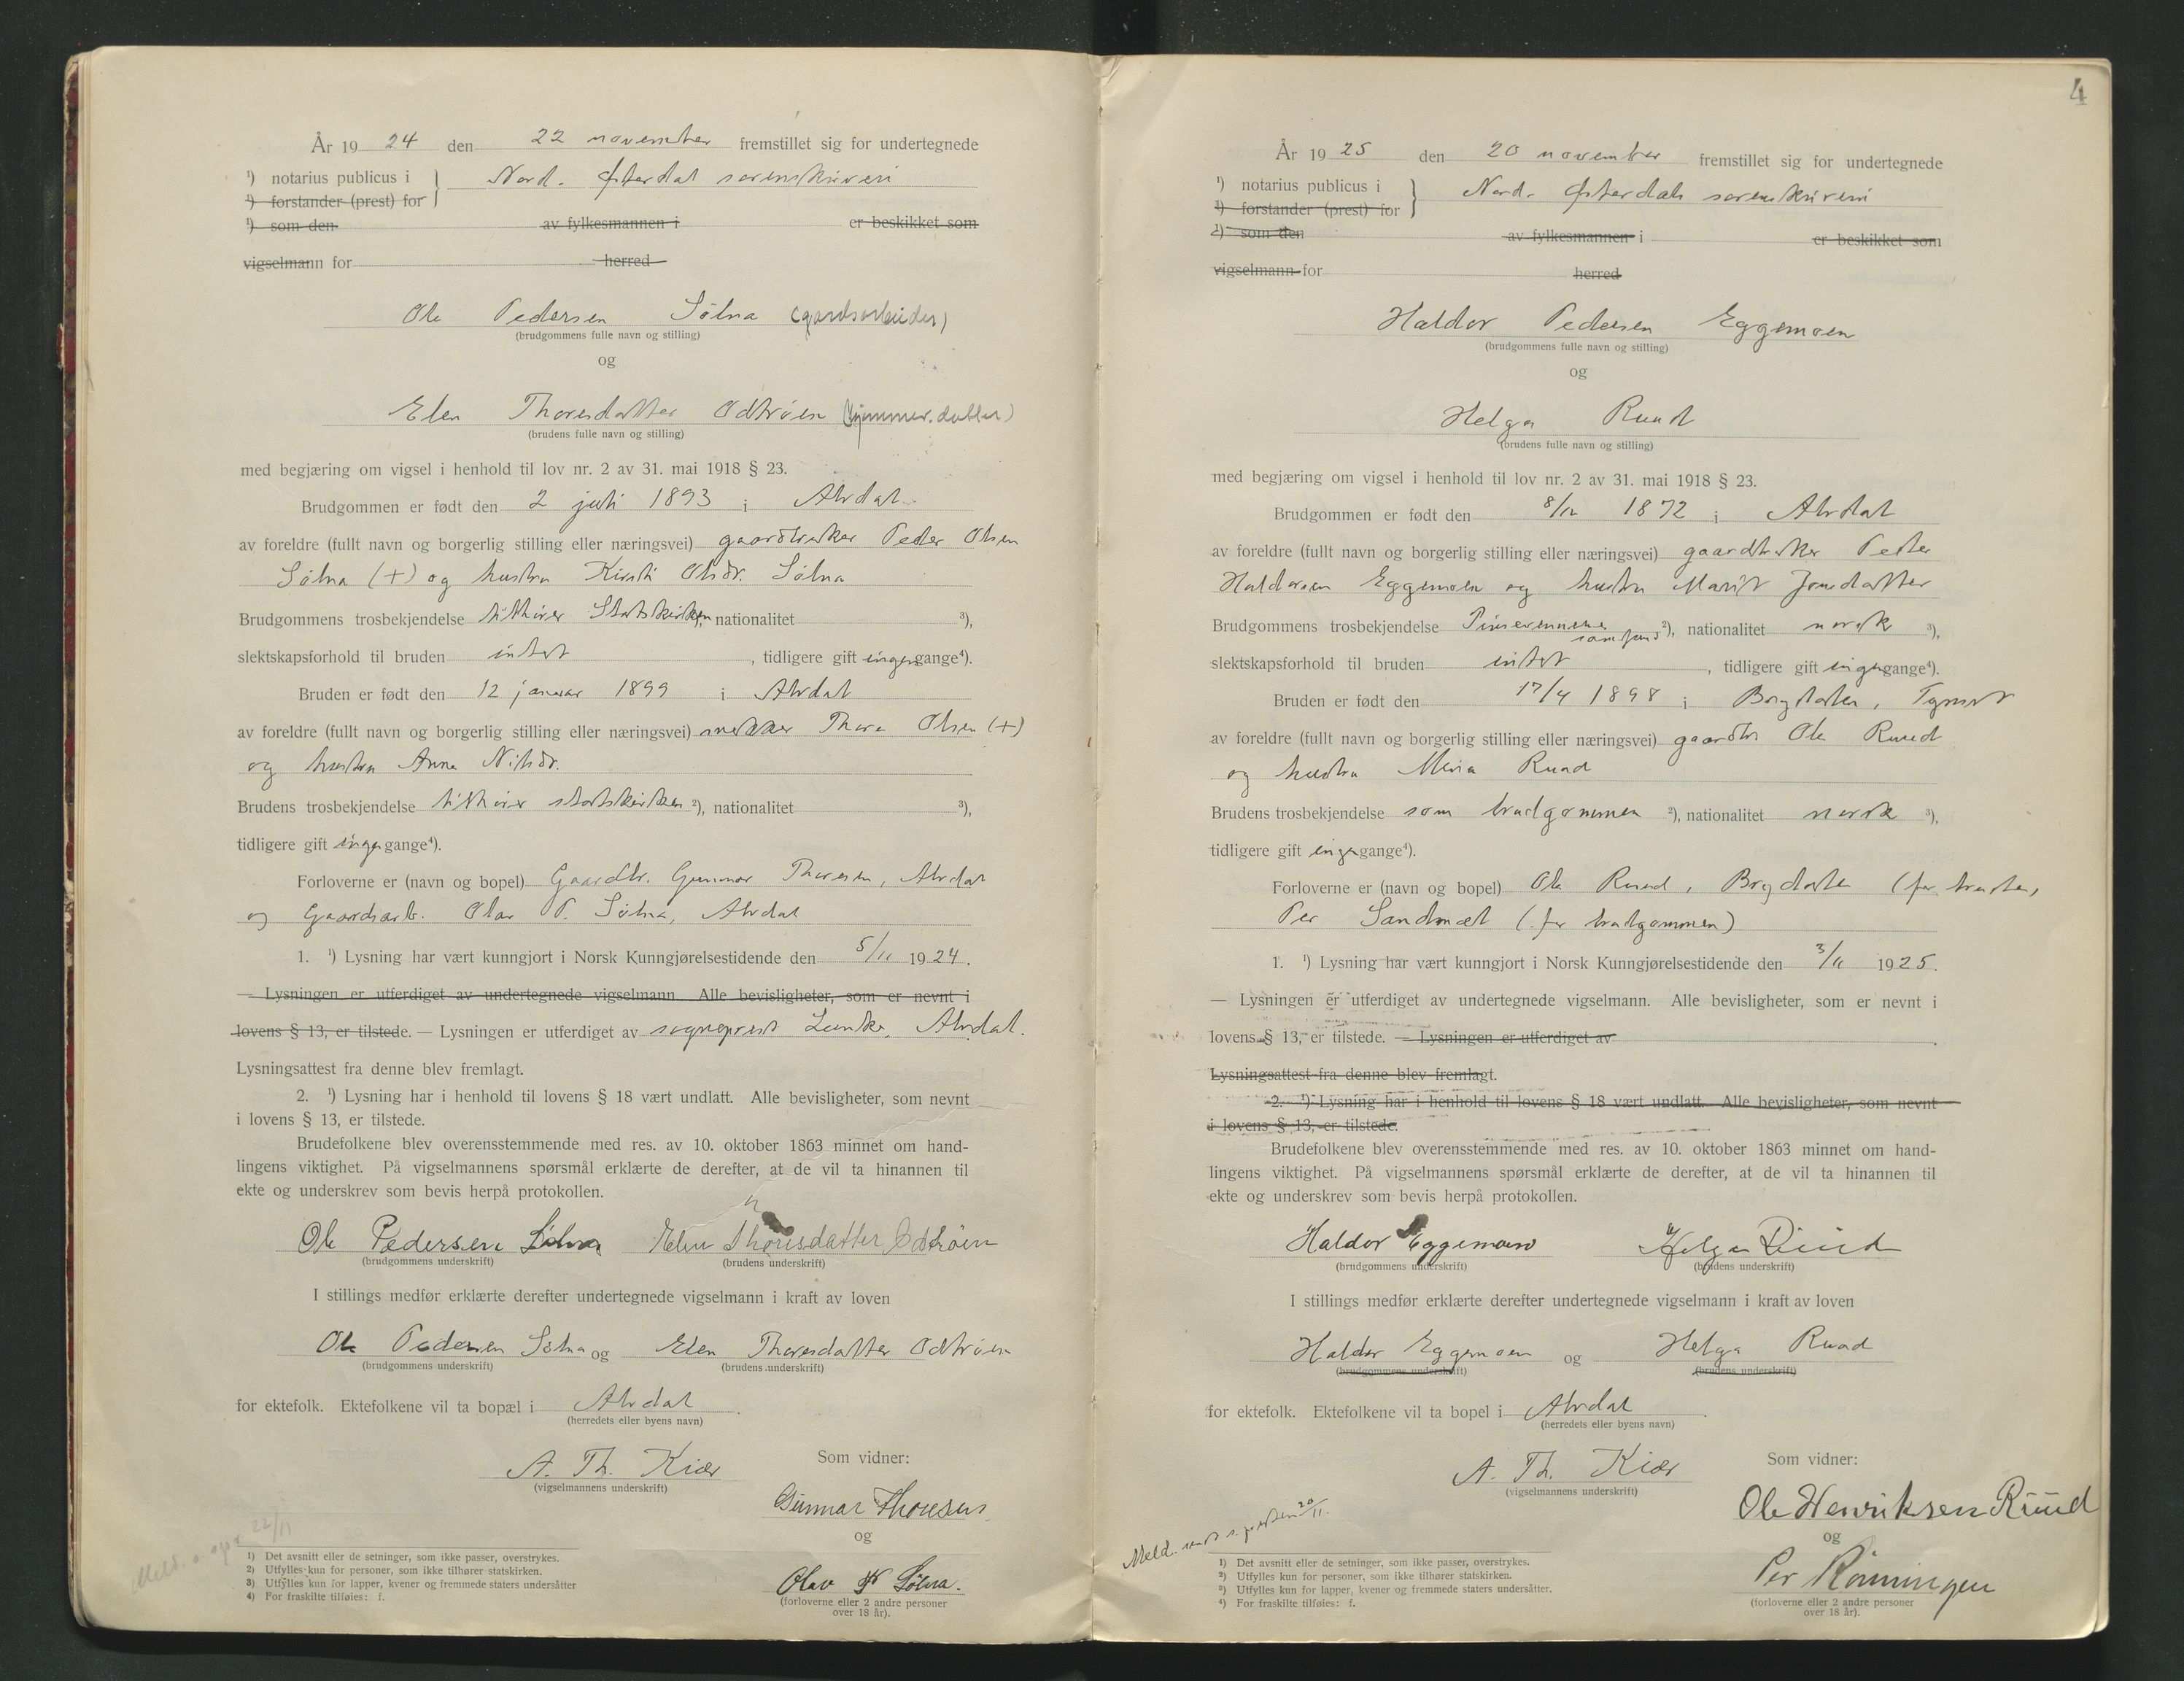 År 19 24 den 22 november fremstillet sig for undertegnede
¹) notarius publicus i } Nord-Østerdal sorenskriveri
¹) forstander (prest) for
¹) som den av fylkesmannen i er beskikket som
vigselmann for herred
Ole Pedersen Sölna (gardsarbeider)
(brudgommens fulle navn og stilling)
og
Elen Thoresdatter Odtröen (hjemmev. datter)
(brudens fulle navn og stilling)
med begjæring om vigsel i henhold til lov nr. 2 av 31. mai 1918 § 23.
Brudgommen er født den 2 juli 1893 i Alvdal
av foreldre (fullt navn og borgerlig stilling eller næringsvei) gaardbruker Peder Olsen
Sölna (+) og hustru Kirsti Olsdr. Sölna
Brudgommens trosbekjendelse tilhörer Statskirken, nationalitet ³),
slektskapsforhold til bruden intet, tidligere gift ingen gange⁴).
Bruden er født den 12 januar 1899 i Alvdal
av foreldre (fullt navn og borgerlig stilling eller næringsvei) snekker Thore Olsen (+)
og hustru Anna Nilsdr.
Brudens trosbekjendelse tilhörer statskirken ²), nationalitet ³),
tidligere gift ingen gange⁴).
Forloverne er (navn og bopel) Gaardbr. Gunnar Thoresen, Alvdal
og Gaardsarb. Olav P. Sölna, Alvdal
1. ¹) Lysning har vært kunngjort i Norsk Kunngjørelsestidende den 5/11 1924.
— Lysningen er utferdiget av undertegnede vigselmann. Alle bevisligheter, som er nevnt i
lovens § 13, er tilstede. — Lysningen er utferdiget av sogneprest Lunke, Alvdal.
Lysningsattest fra denne blev fremlagt.
2. ¹) Lysning har i henhold til lovens § 18 vært undlatt. Alle bevisligheter, som nevnt
i lovens § 13, er tilstede.
Brudefolkene blev overensstemmende med res. av 10. oktober 1863 minnet om hand-
lingens viktighet. På vigselmannens spørsmål erklærte de derefter, at de vil ta hinannen til
ekte og underskrev som bevis herpå protokollen.
Ole Pedersen Sölna Elen Thoresdatter Odtröen
(brudgommens underskrift) (brudens underskrift)
I stillings medfør erklærte derefter undertegnede vigselmann i kraft av loven
Ole Pedersen Sölna og Elen Thoresdatter Odtröen
(brudgommens underskrift) (brudens underskrift)
for ektefolk. Ektefolkene vil ta bopæl i Alvdal.
(herredets eller byens navn)
A. Th. Kiær Som vidner:
(vigselmannens underskrift)
Gunnar Thoresen
og
Olav P Sölna.
(forloverne eller 2 andre personer
over 18 år).
22/11
1) Det avsnitt eller de setninger, som ikke passer, overstrykes.
2) Utfylles kun for personer, som ikke tilhører statskirken.
3) Utfylles kun for lapper, kvener og fremmede staters undersåtter
4) For fraskilte tilføies: f.
4
År 19 25 den 20 november fremstillet sig for undertegnede
¹) notarius publicus i } Nord-Østerdals sorenskriveri
¹) forstander (prest) for
¹) som den av fylkesmannen i er beskikket som
vigselmann for herred
Haldor Pedersen Eggemoen
(brudgommens fulle navn og stilling)
og
Helga Ruud
(brudens fulle navn og stilling)
med begjæring om vigsel i henhold til lov nr. 2 av 31. mai 1918 § 23.
Brudgommen er født den 8/12 1872 i Alvdal
av foreldre (fullt navn og borgerlig stilling eller næringsvei) gaardbruker Peder
Haldorsen Eggemoen og hustru Marit Jonsdatter
Brudgommens trosbekjendelse Pinsevennene samfund ²), nationalitet norsk ³),
slektskapsforhold til bruden intet, tidligere gift ingen gange⁴).
Bruden er født den 17/4 1898 i Brydalen, Tynset
av foreldre (fullt navn og borgerlig stilling eller næringsvei) gaardbr Ole Ruud
og hustru Ruud
Brudens trosbekjendelse som brudgommen ²), nationalitet norsk ³),
tidligere gift ingen gange⁴).
Forloverne er (navn og bopel) Ole Ruud, Brydalen (for bruden,
Per (for brudgommen)
1. ¹) Lysning har vært kunngjort i Norsk Kunngjørelsestidende den 3/11 1925.
— Lysningen er utferdiget av undertegnede vigselmann. Alle bevisligheter, som er nevnt i
lovens § 13, er tilstede. — Lysningen er utferdiget av .
Lysningsattest fra denne blev fremlagt.
2. ¹) Lysning har i henhold til lovens § 18 vært undlatt. Alle bevisligheter, som nevnt
i lovens § 13, er tilstede.
Brudefolkene blev overensstemmende med res. av 10. oktober 1863 minnet om hand-
lingens viktighet. På vigselmannens spørsmål erklærte de derefter, at de vil ta hinannen til
ekte og underskrev som bevis herpå protokollen.
Haldor Eggemoen Helga Ruud
(brudgommens underskrift) (brudens underskrift)
I stillings medfør erklærte derefter undertegnede vigselmann i kraft av loven
Haldor Eggemoen og Helga Ruud
(brudgommens underskrift) (brudens underskrift)
for ektefolk. Ektefolkene vil ta bopel i Alvdal.
(herredets eller byens navn)
A. Th. Kiær Som vidner:
(vigselmannens underskrift)
Ole Henriksen Ruud
og
Per Rönningen
(forloverne eller 2 andre personer
over 18 år).
Meld. sendt s. presten 20/11.
1) Det avsnitt eller de setninger, som ikke passer, overstrykes.
2) Utfylles kun for personer, som ikke tilhører statskirken.
3) Utfylles kun for lapper, kvener og fremmede staters undersåtter.
4) For fraskilte tilføies: f.